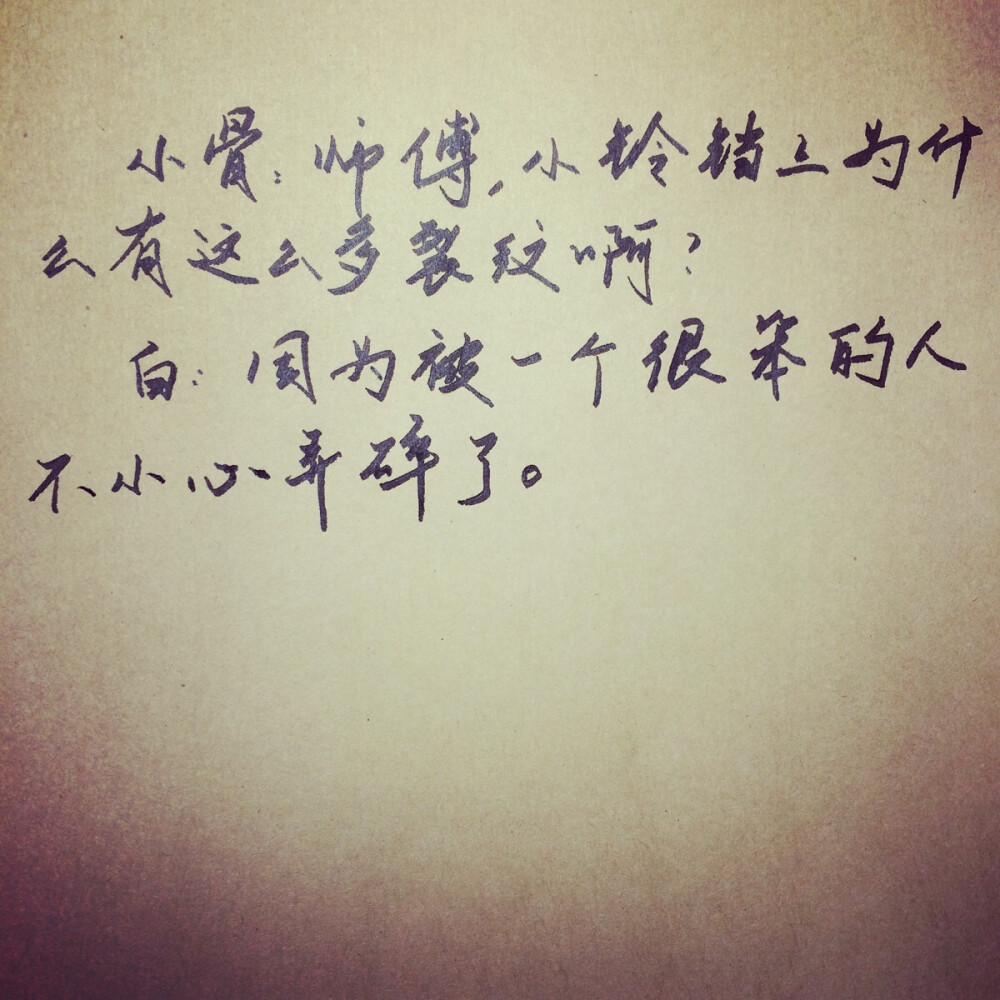 小骨：师傅，小铃铛上为什
么有这么多裂纹啊？
白：因为被一个很笨的人
不小心弄碎了。